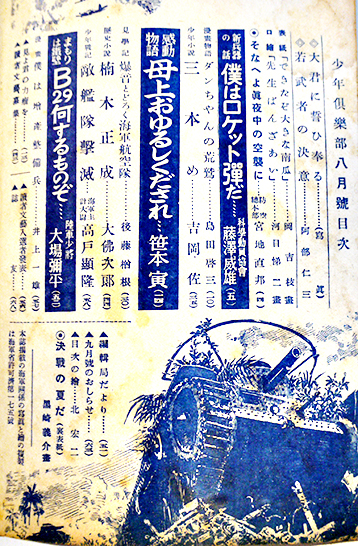 少年倶樂部八月號目次
◇大君に誓ひ奉る……(寫眞)
◇若武者の決意……阿部仁三
表紙「できたぞ大きな南瓜」……岡吉枝畫
口繪「先生ばんざあい」……河目悌二畫
◎そなへよ眞夜中の空襲に……防空總本部 宮地直邦(二)
新兵器の話 僕はロケット彈だ……科學動員協會 藤澤威雄(五)
漫畫物語 ダンちやんの荒鷲……島田啓三(三)
少年小説 三本め……吉岡佐
感動物語 母上おゆるしくだされ……笹本寅(四)
見學記 爆音とどろく海軍航空隊……後藤楢根
歴史小説 楠木正成……大佛次郎
少年戰記 敵艦隊擊滅……海軍主計大尉 高戸顯隆
まもりは鐵壁 B29何するものぞ……陸軍少將 大場彌平
漫畫 僕は增產整備兵……井上一雄
▲見よ君の力作を……
▲讀者文藝募集……
▲讀者文藝入選者發表……
▲誌友……
▲編輯局だより……
▲九月號のおしらせ……
▲目次の繪……北宏二
◎決戰の夏だ(裏表紙)……黒崎義介畫
本誌揭載の海軍關係の寫眞と繪の複製
は海軍省許可濟第一七五號